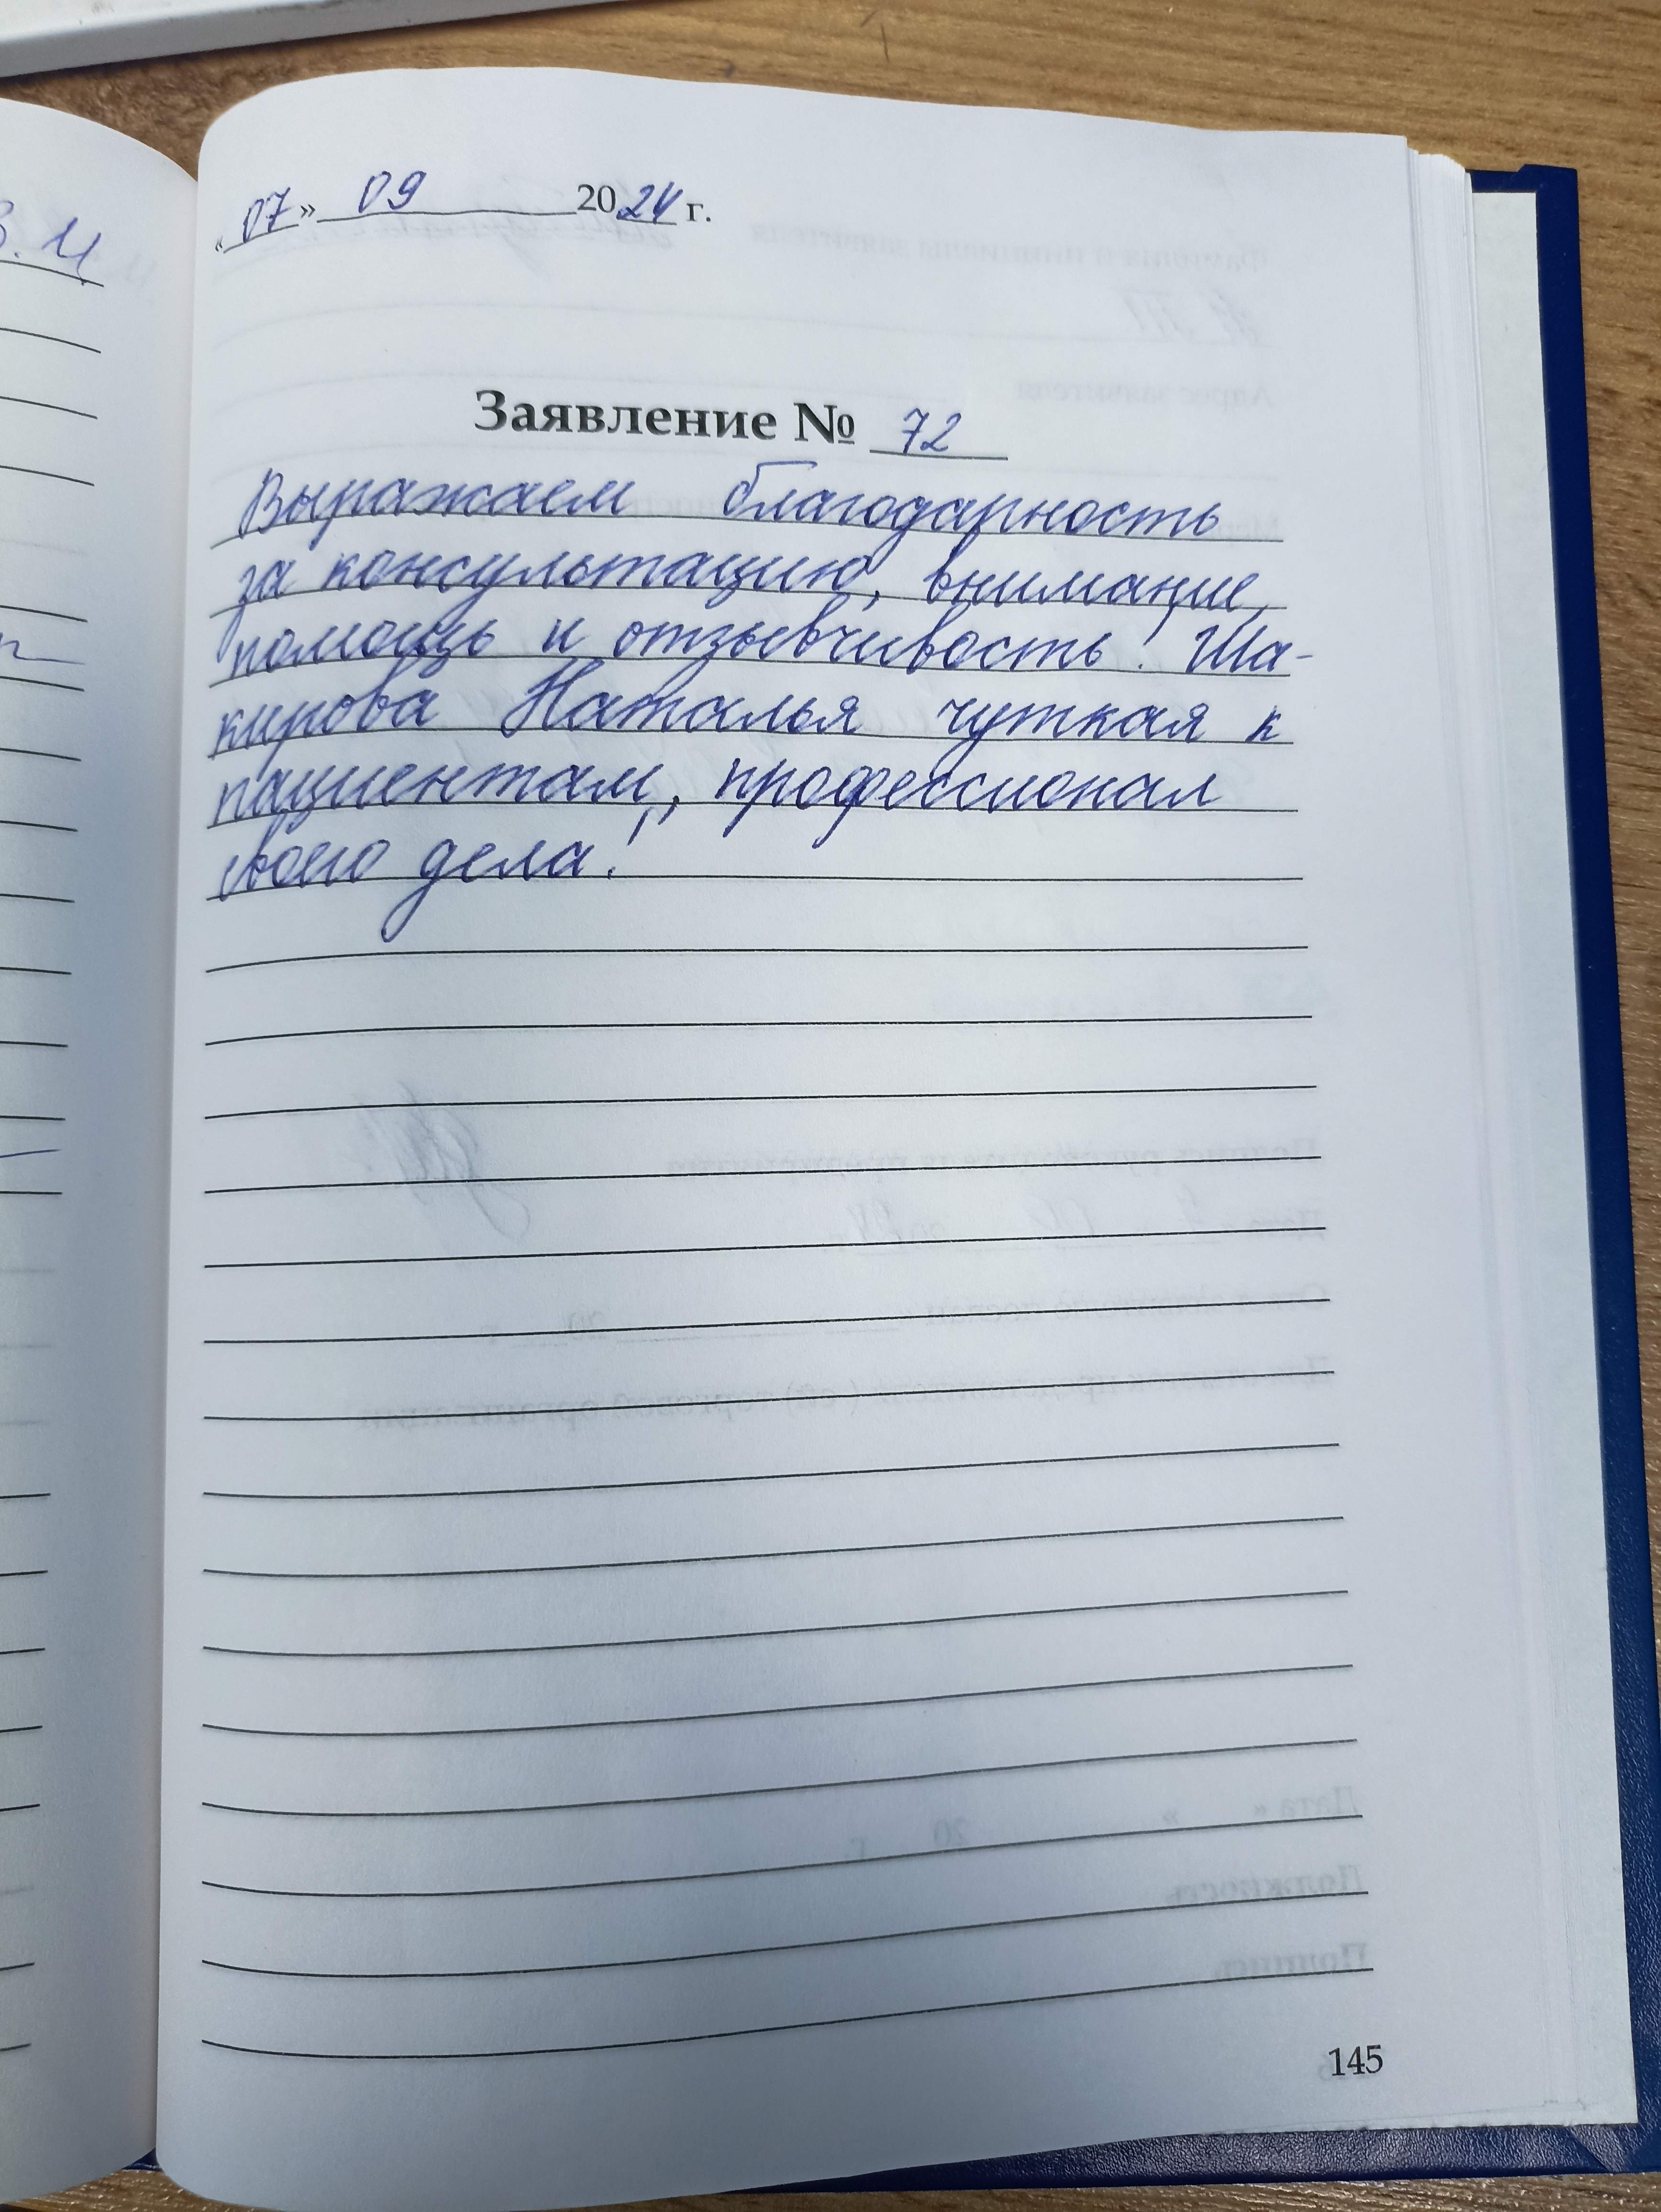 «07» 09 2024 г.
Заявление № 72
Выражаем благодарность
за консультацию, внимание,
помощь и отзывчивость! Ша-
кирова Наталья чуткая к
пациентам, профессионал
своего дела!
145